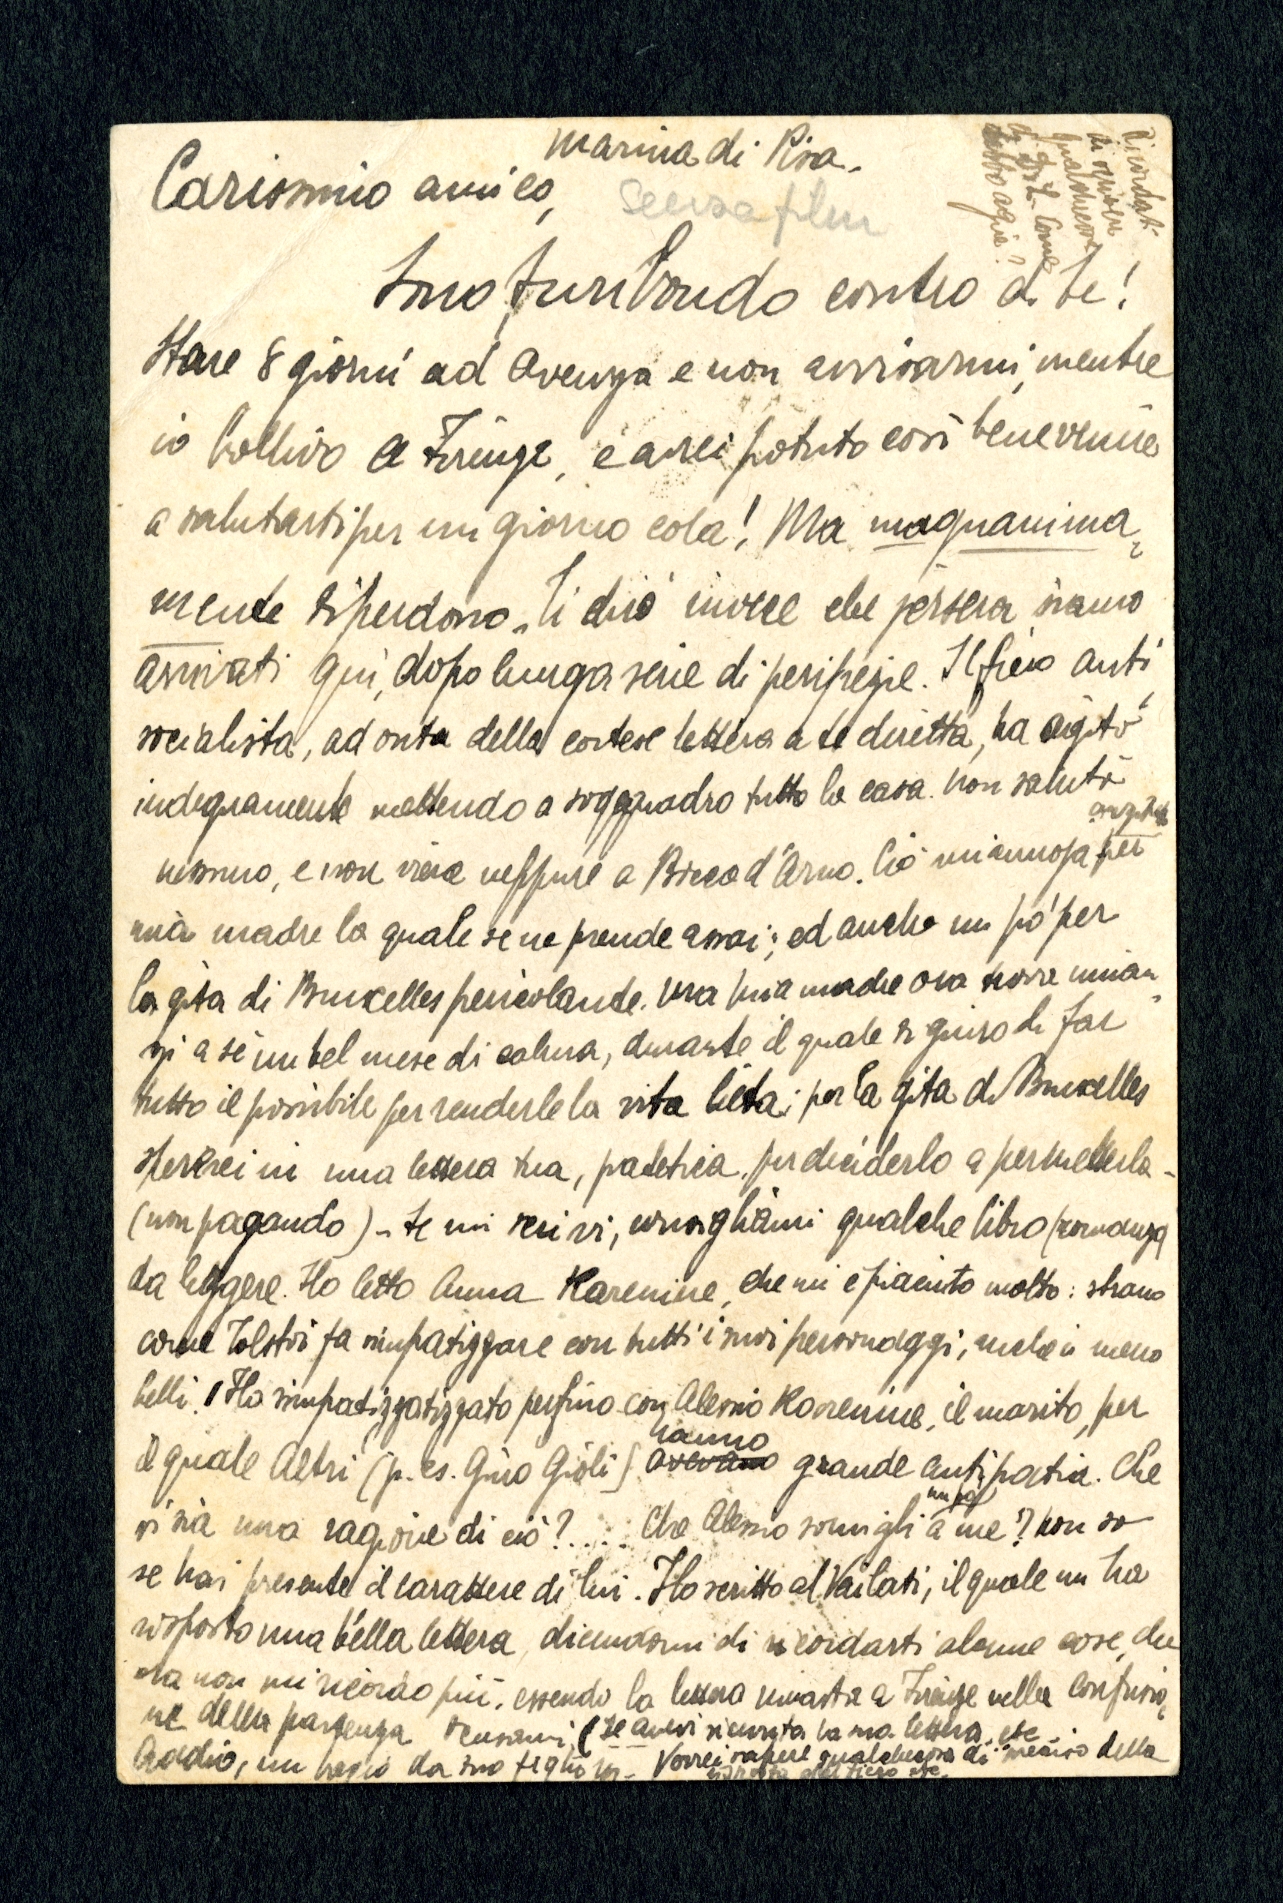 Marina di Pisa.
Carissimo amico,
senza film
Ricordati
di scrivere
qualchecosa
di D. L. Come
agire?
Sono furibondo contro di te!
Stare 8 giorni ad Avenza e non avvisarmi, mentre
io bollivo a Firenze, e avrei potuto così bene venire
a salutarti per un giorno colà! Ma magnanima-
mente ti perdono. Ti dirò invece che jersera siamo
arrivati qui, dopo lunga serie di peripezie. Il fiero anti
socialista, ad onta della cortese lettera a te diretta, ha agito
indegnamente mettendo a soqquadro tutta la casa. Non salutò
nessuno, e non viene neppure a Bocca d'Arno. Ciò mi annoja per
mia madre la quale se ne prende assai; ed anche un pò per
la gita di Bruxelles pericolante. Ma mia madre ora scorre innan-
zi a sè un bel mese di calma, durante il quale ti giuro di far
tutto il possibile per renderle la vita lieta; per la gita di Bruxelles
sperrei in una lettera tua, patetica, per deciderlo a permetterla
(non pagando). Se mi scrivi, consigliami qualche libro (romanzo)
da leggere. Ho letto Anna Karenine, che mi è piaciuto molto: strano
come Tolstoi fa simpatizzare con tutti i suoi personaggi, anche i meno
belli. Ho simpatizzatizzato perfino con Alessio Karenine, il marito, per
hanno
il quale altri (p. es. Gino Gioli) avevano grande antipatia. Che
un po'
vi sia una ragione di ciò?.... Che Alessio somigli a me? Non so
se hai presente il carattere di lui. Ho scritto al Vailati, il quale mi ha
risposto una bella lettera, dicendomi di ricordarti alcune cose, che
ora non mi ricordo più, essendo la lettera rimasta a Firenze nella confusio-
ne della partenza. Scusami (Se avevi ricevuta la sua lettera etc
Addio, un bacio da suo Vorrei sapere qualchecosa di preciso della